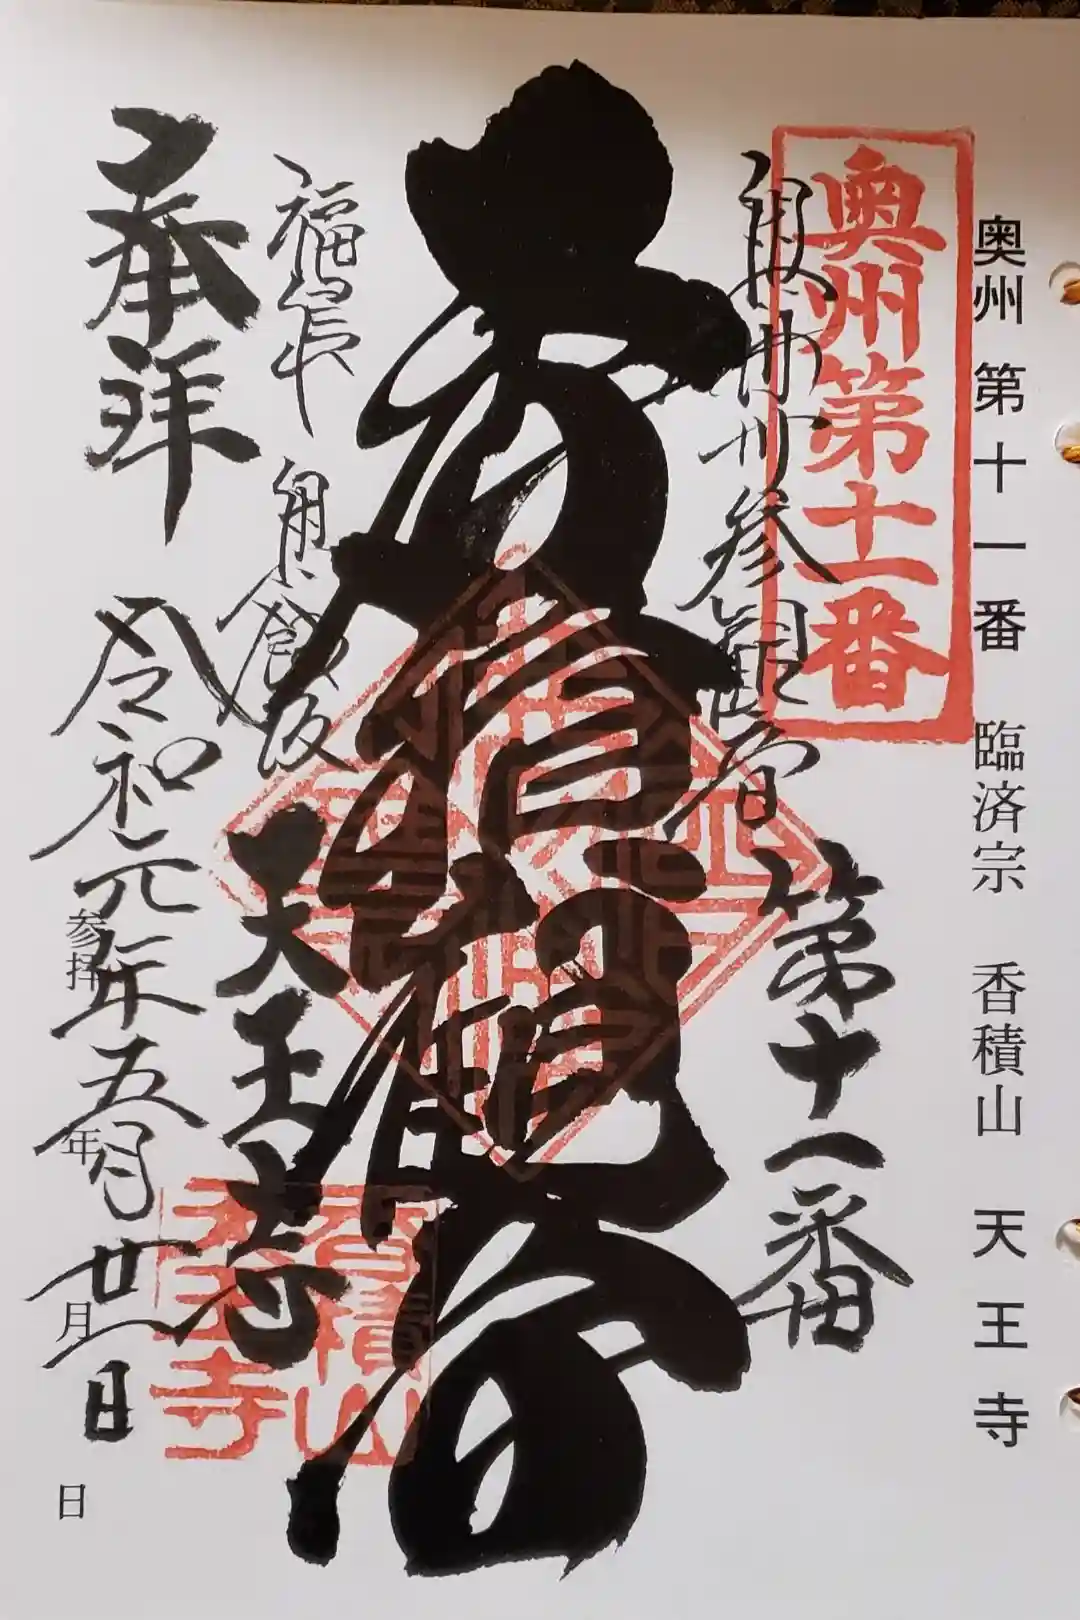 奥州第十一番 臨済宗 香積山 天王寺
奥州第十一番
奥州三十三観音
第十一番
香積観音
福島県飯坂
天王寺
香積山
天王寺
奉拝
令和元年五月廿一日
参拝 年 月 日